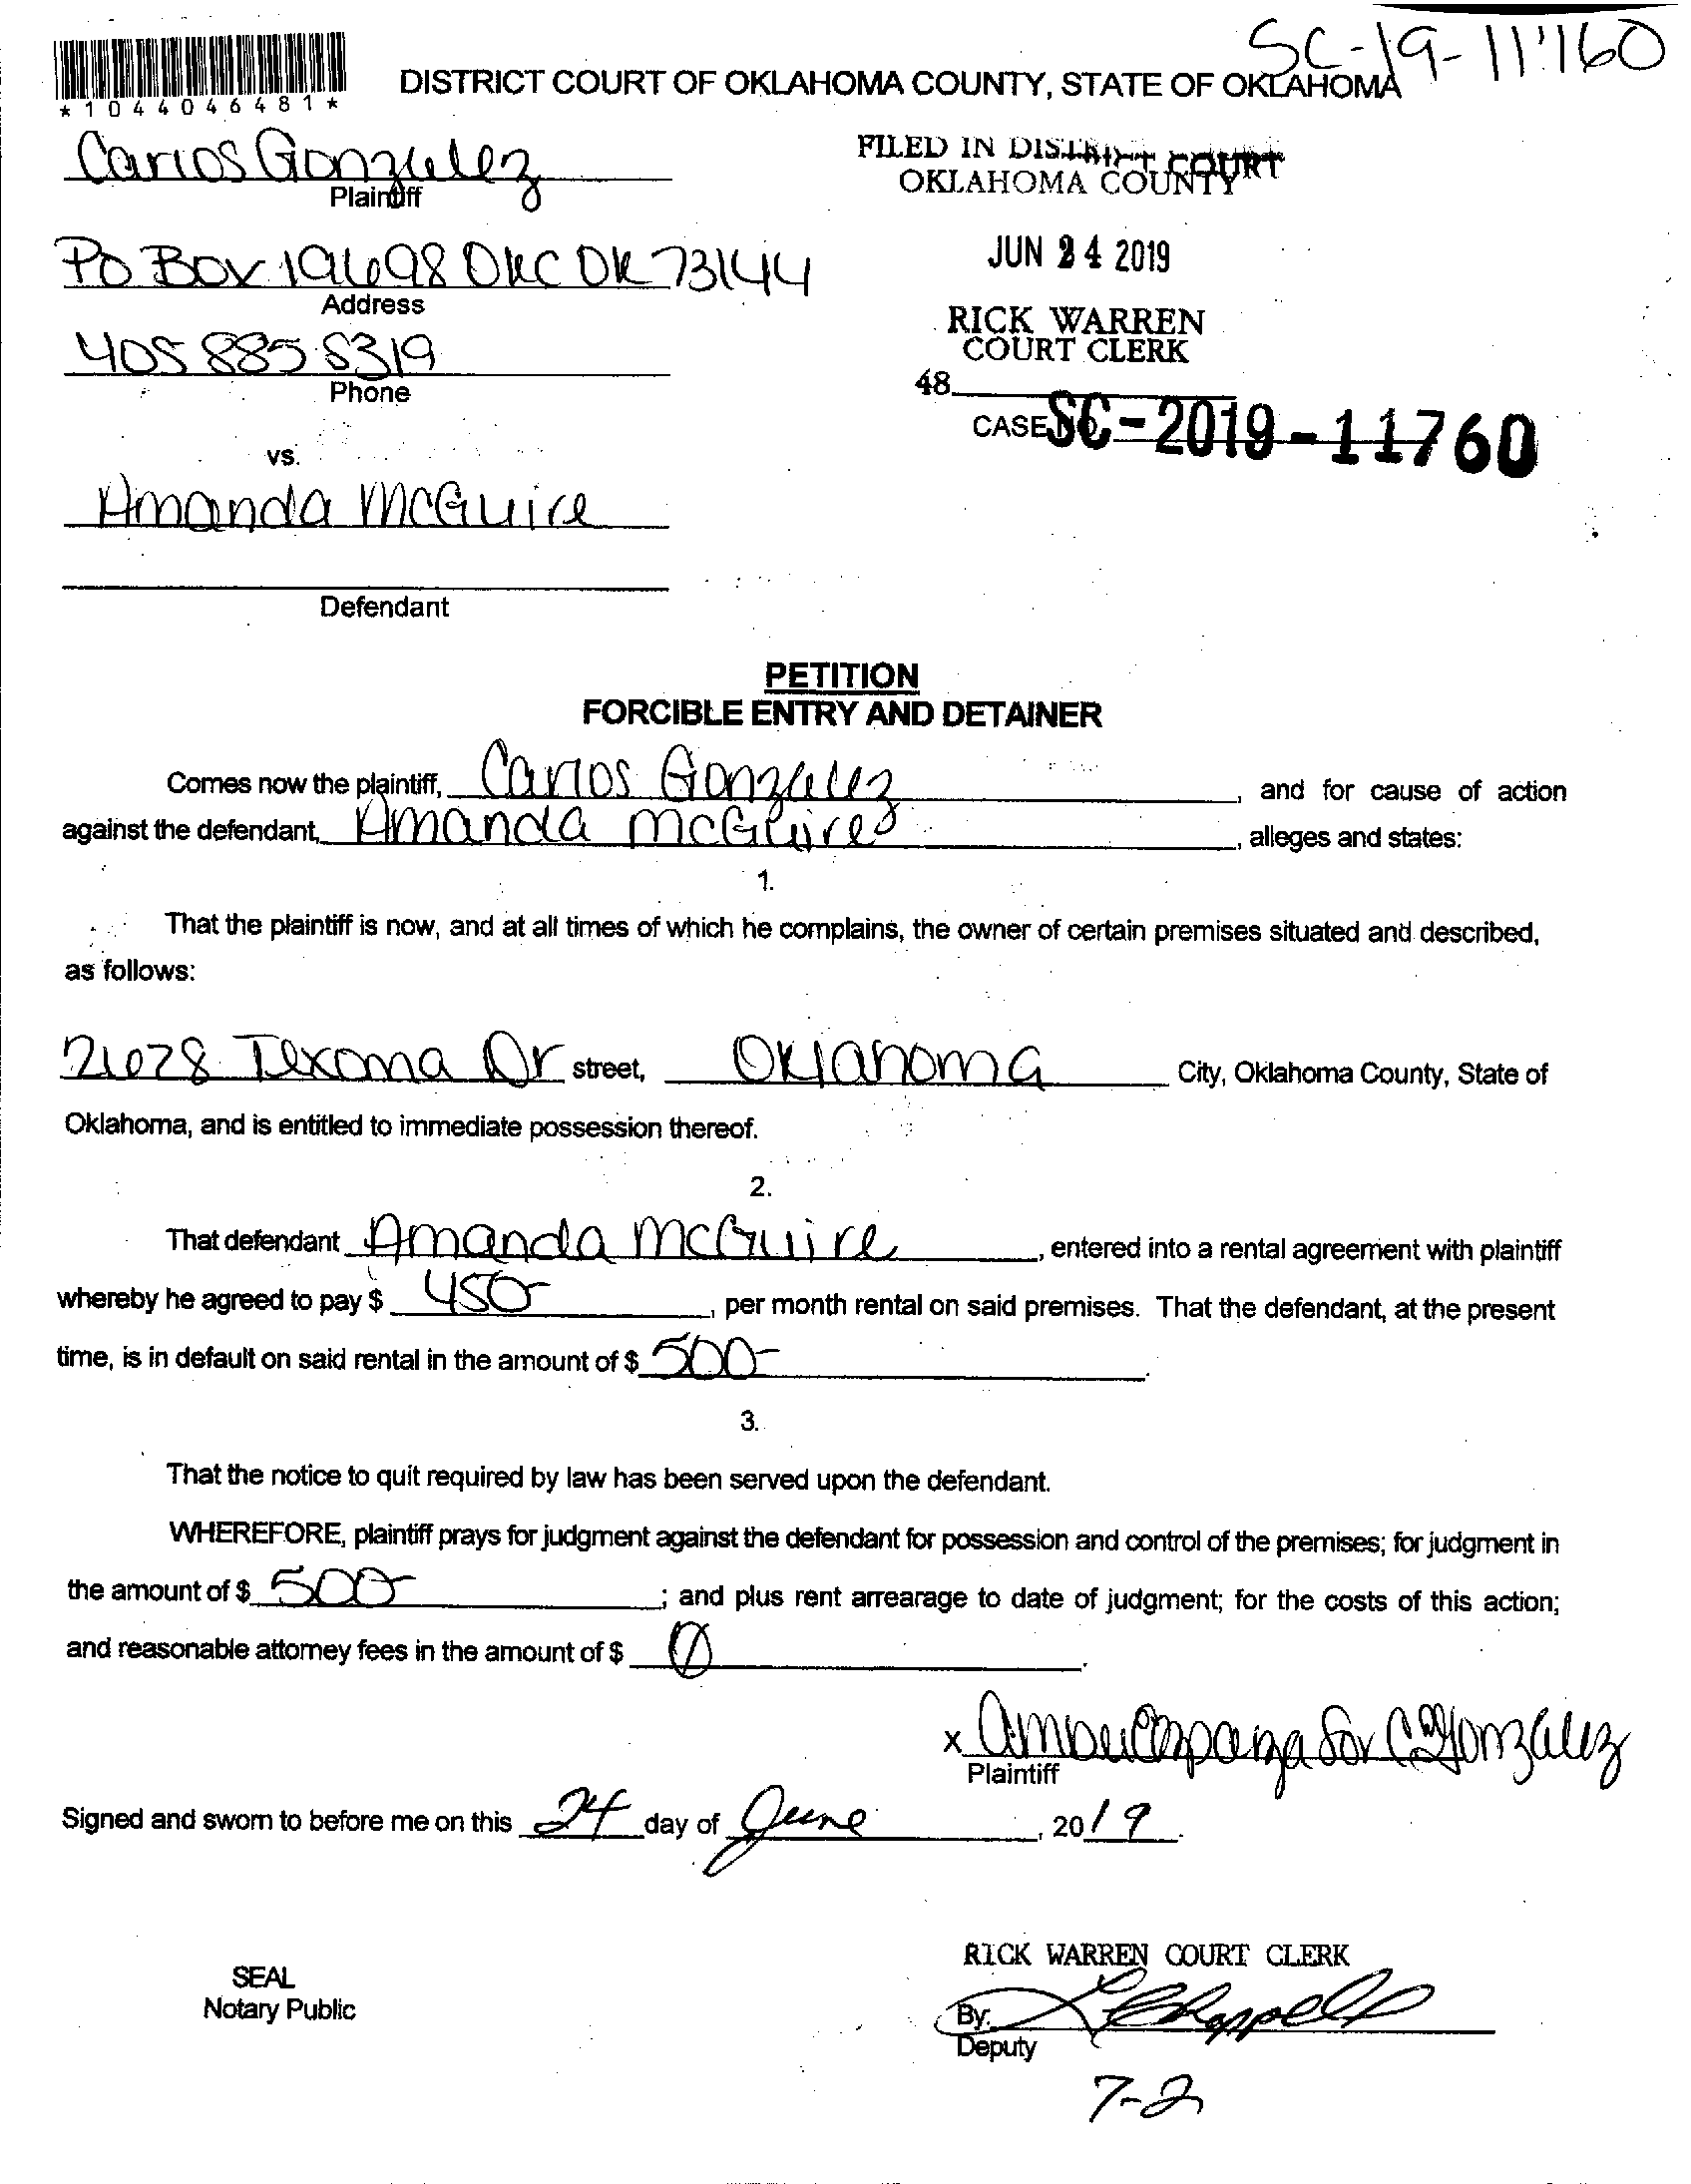 SC-19-11760
*1044046481*
DISTRICT COURT OF OKLAHOMA COUNTY, STATE OF OKLAHOMA
Carlos Gonzalez
Plaintiff
FILED IN DISTRICT COURT
OKLAHOMA COUNTY
PO Box 19698 OKC OK 73144
Address
JUN 24 2019
405 885 8319
Phone
RICK WARREN
COURT CLERK
48
CASE NO. SC-2019-11760
vs.
Amanda McGuire
Defendant
PETITION
FORCIBLE ENTRY AND DETAINER
Comes now the plaintiff, Carlos Gonzalez, and for cause of action
against the defendant, Amanda McGuire, alleges and states:
1.
That the plaintiff is now, and at all times of which he complains, the owner of certain premises situated and described,
as follows:
2628 Texoma Dr street, Oklahoma City, Oklahoma County, State of
Oklahoma, and is entitled to immediate possession thereof.
2.
That defendant Amanda McGuire, entered into a rental agreement with plaintiff
whereby he agreed to pay $ 450-, per month rental on said premises. That the defendant, at the present
time, is in default on said rental in the amount of $ 500-.
3.
That the notice to quit required by law has been served upon the defendant.
WHEREFORE, plaintiff prays for judgment against the defendant for possession and control of the premises; for judgment in
the amount of $ 500-; and plus rent arrearage to date of judgment; for the costs of this action;
and reasonable attorney fees in the amount of $ 0.
x for C Gonzalez
Plaintiff
Signed and sworn to before me on this 24 day of June, 2019.
RICK WARREN COURT CLERK
SEAL
Notary Public
By: L Chappell
Deputy
7-2